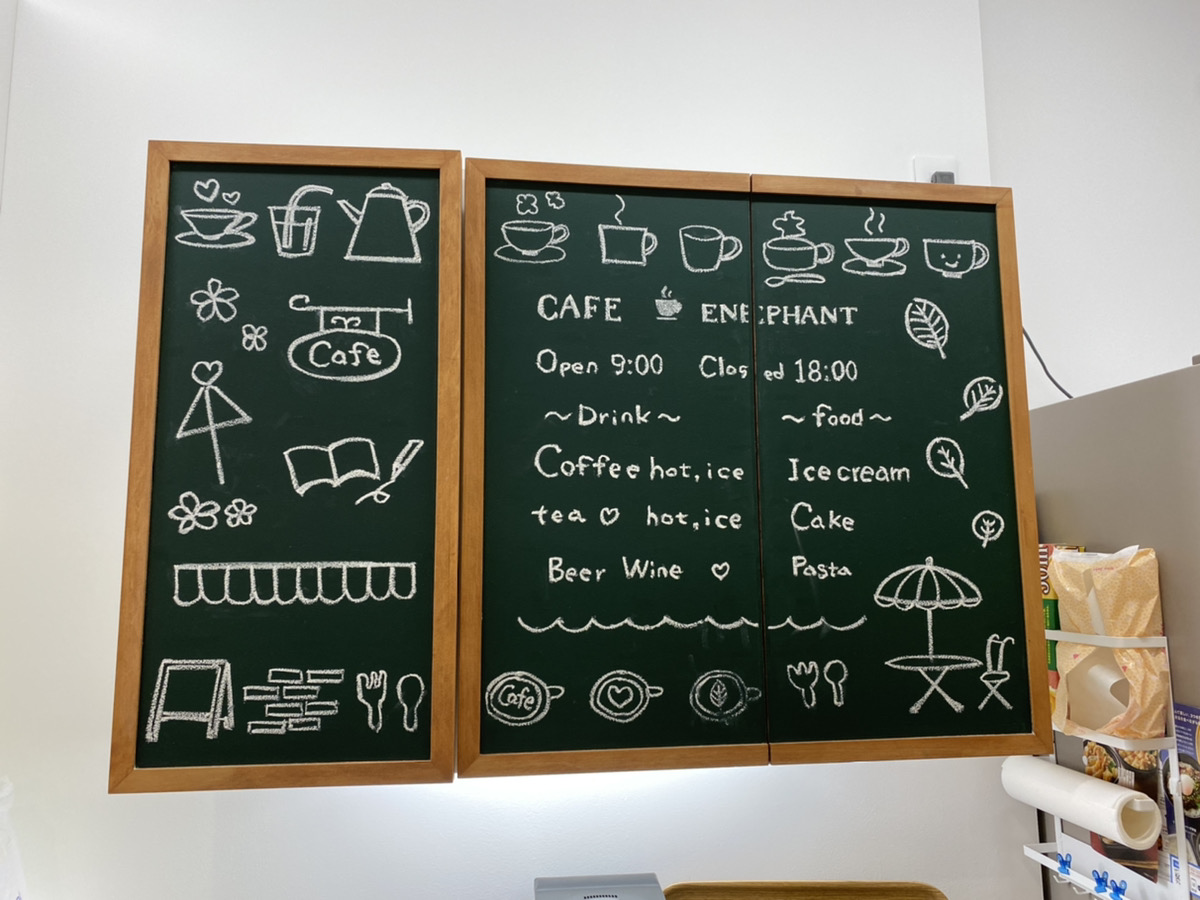 Cafe
CAFE ENEEPHANT
Open 9:00 Closed 18:00
~Drink~ ~food~
Coffee hot,ice Icecream
tea ♡ hot,ice Cake
Beer Wine ♡ Pasta
Cafe